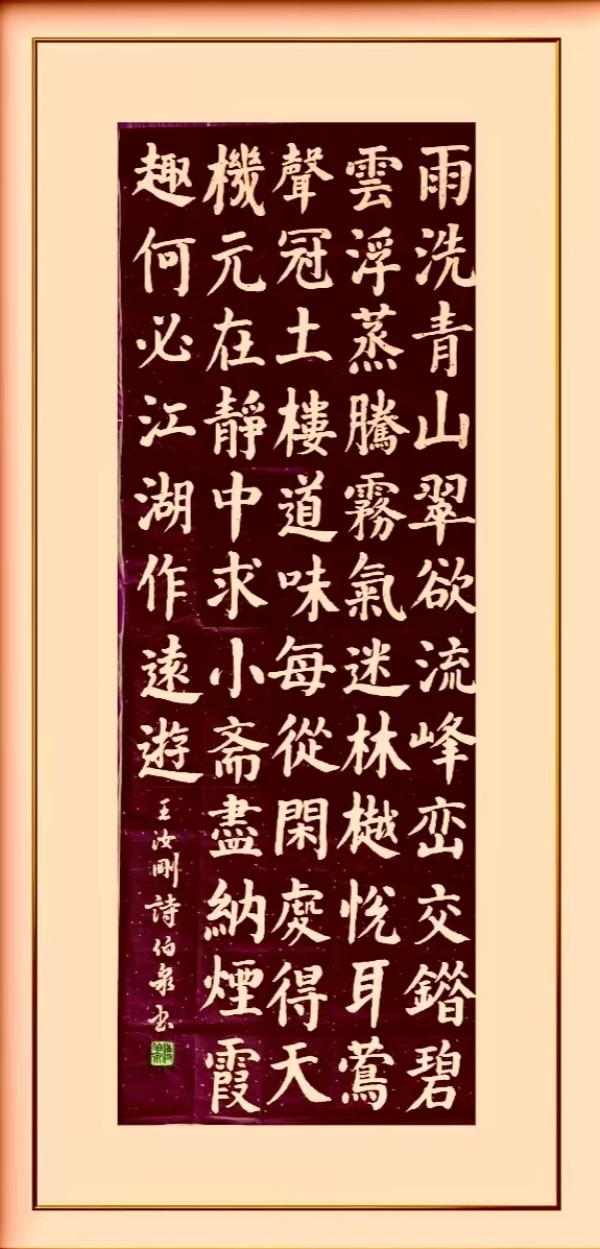 雨洗青山翠欲流峰峦交鐕碧
雲浮蒸騰霧氣迷林樾悅耳鶯
聲冠土樓道味每從閑處得天
機元在靜中求小斋盡納煙霞
趣何必江湖作遠遊
王汝剛詩伯泉书